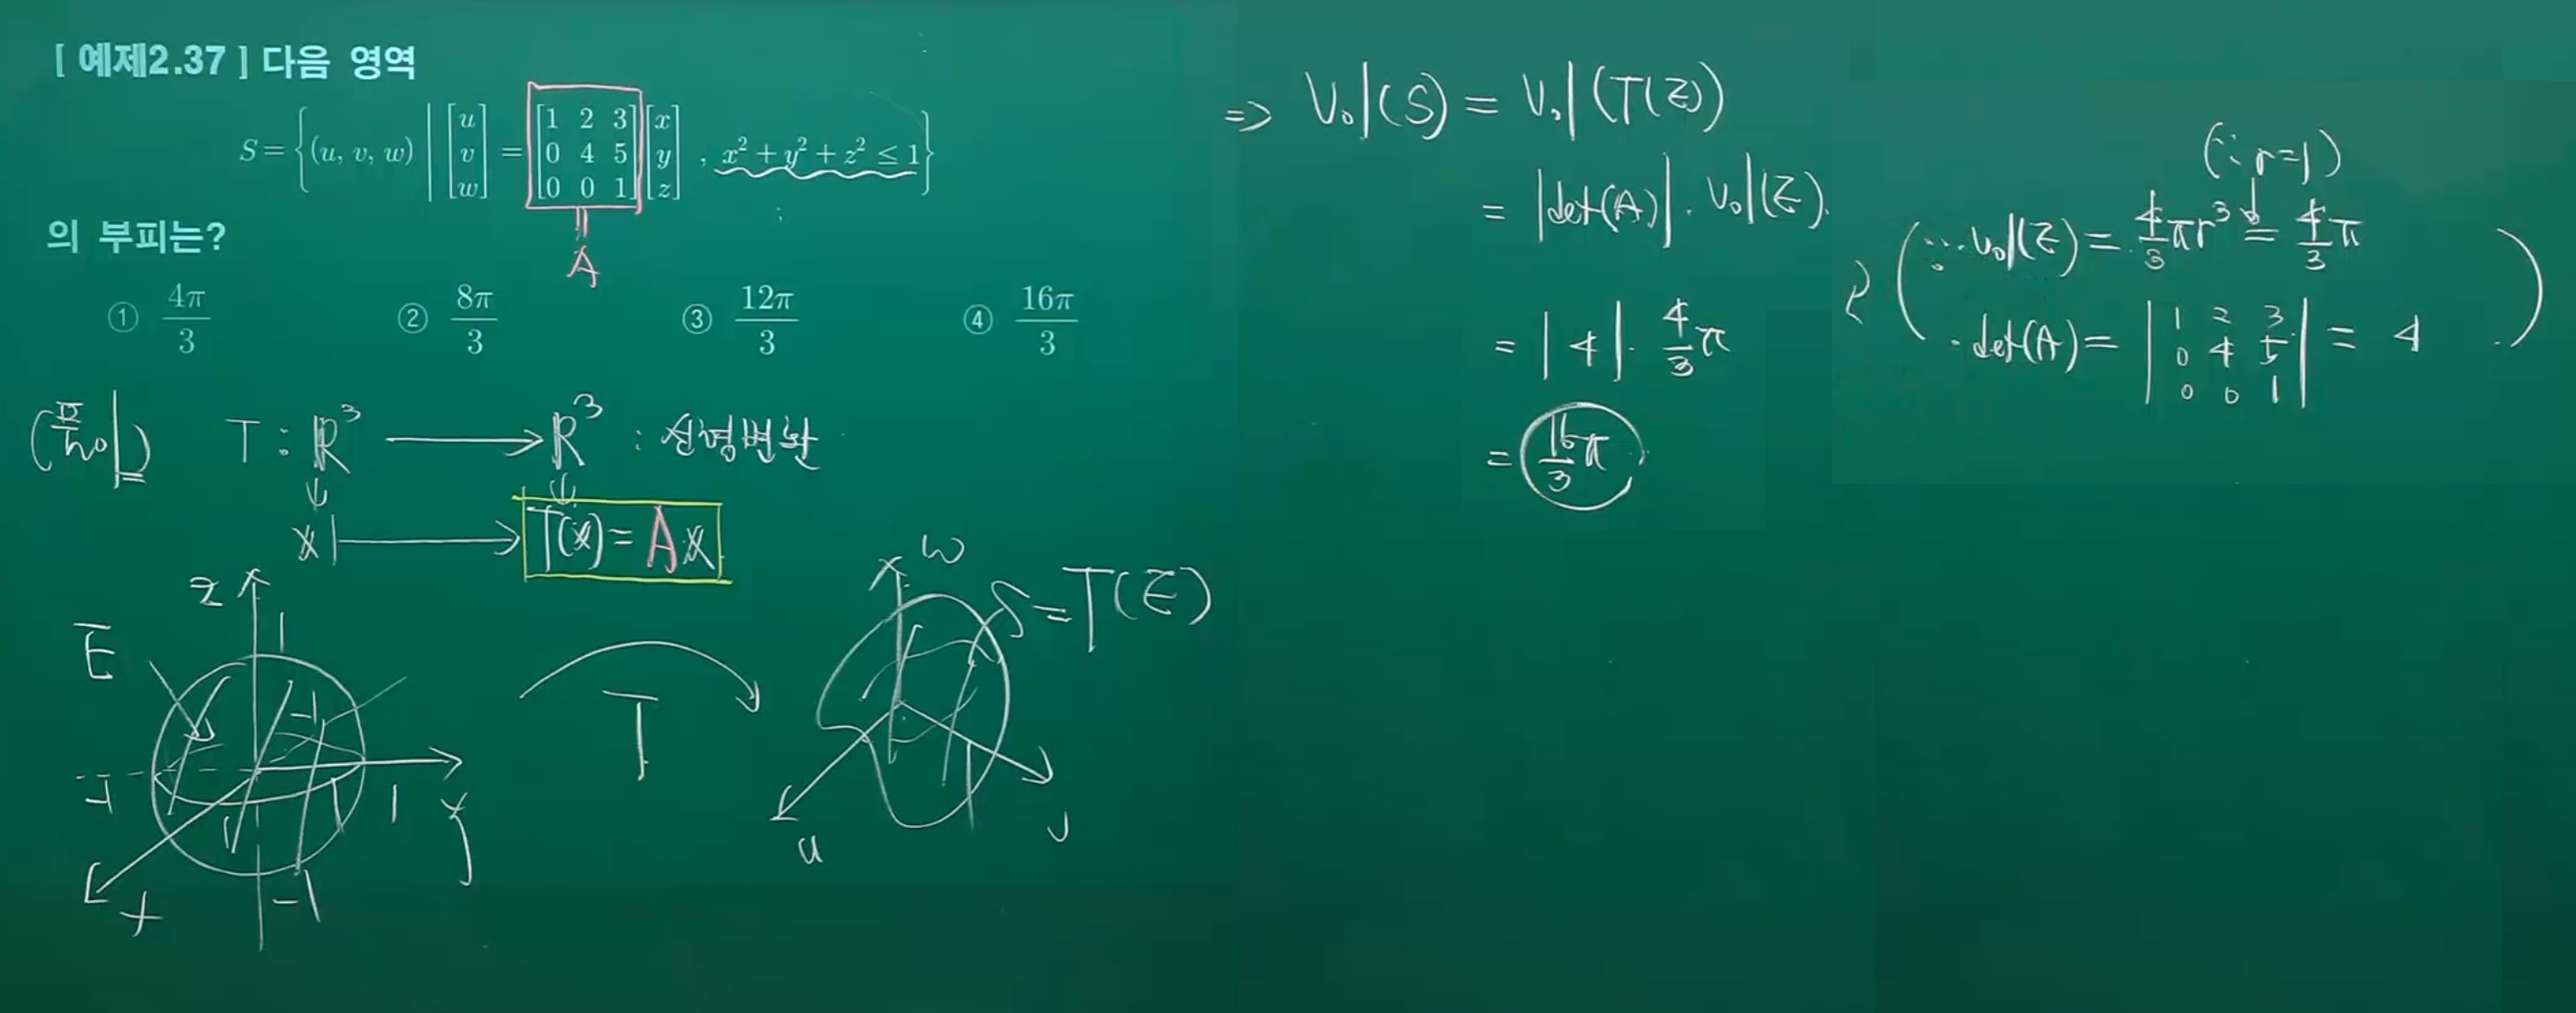 [ 예제2.37 ] 다음 영역
S = { (u, v, w) | [u v w] = [1 2 3 0 4 5 0 0 1] [x y z] , x² + y² + z² ≤ 1 }
A
의 부피는?
① 4π/3 ② 8π/3 ③ 12π/3 ④ 16π/3
(풀이) T : ℝ³ → ℝ³ : 선형변환
x ↦ T(x) = Ax
E
z
1
-1
-1
1
y
x
-1
T
w
S = T(E)
u
v
⇒ Vol(S) = Vol(T(E))
= |det(A)| · Vol(E).
= |4| · 4/3 π
= 16/3 π
(∵ r=1)
∵ · Vol(E) = 4/3 πr³ = 4/3 π
· det(A) = |1 2 3 0 4 5 0 0 1| = 4